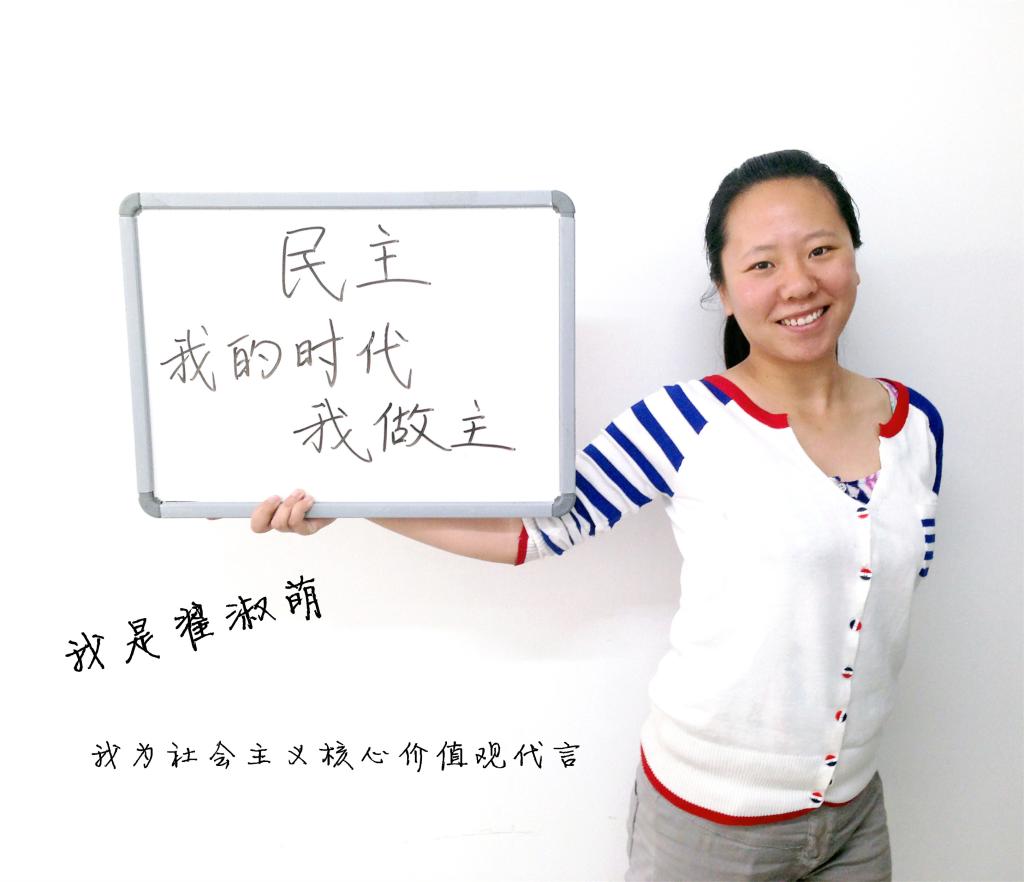 民主
我的时代
我做主
我是翟淑萌
我为社会主义核心价值观代言